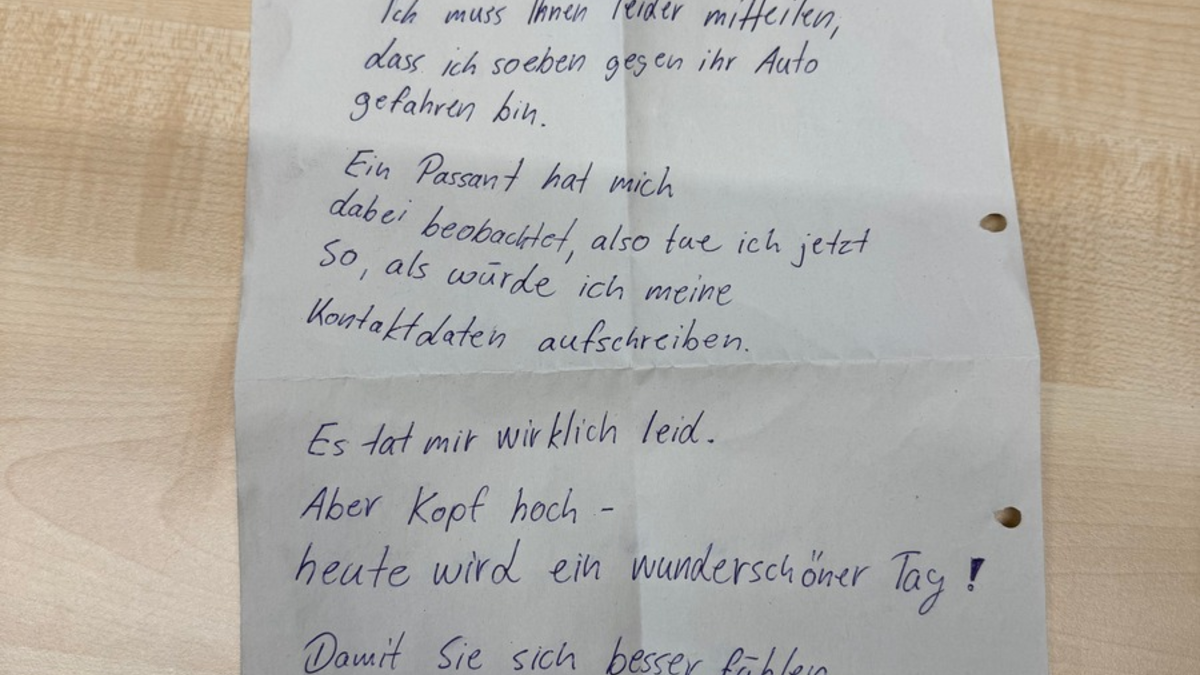 Ich muss Ihnen leider mitteilen,
dass ich soeben gegen ihr Auto
gefahren bin.
Ein Passant hat mich
dabei beobachtet, also tue ich jetzt
so, als würde ich meine
Kontaktdaten aufschreiben.
Es tat mir wirklich leid.
Aber Kopf hoch -
heute wird ein wunderschöner Tag!
Damit Sie sich besser fühlen